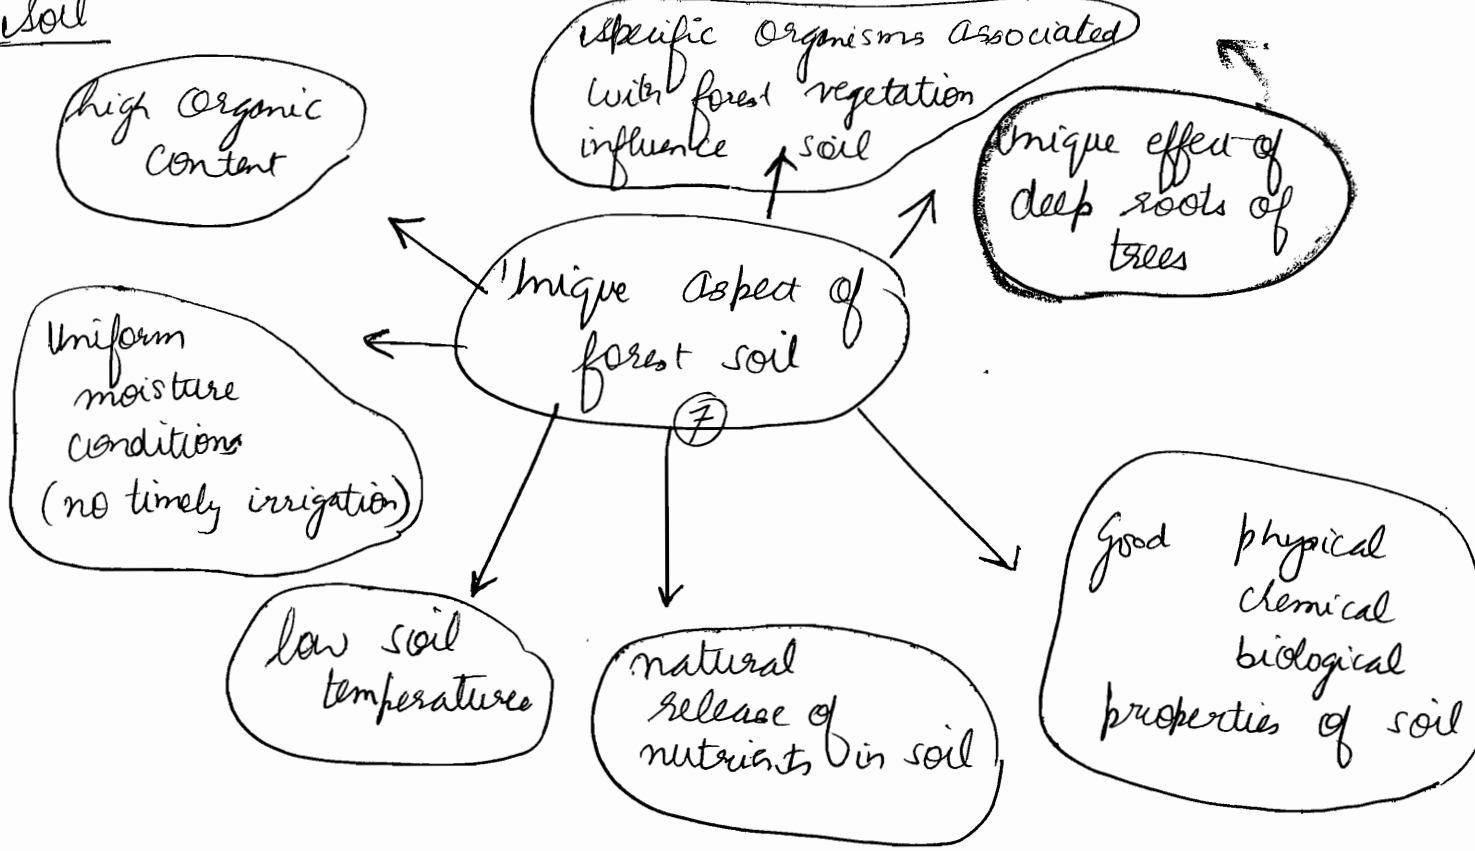 Soil
high organic
content
specific organisms associated
with forest vegetation
influence soil
Unique effect of
deep roots of
trees
Unique aspect of
forest soil
7
Uniform
moisture
conditions
(no timely irrigation)
low soil
temperatures
natural
release of
nutrients in soil
Good physical
chemical
biological
properties of soil